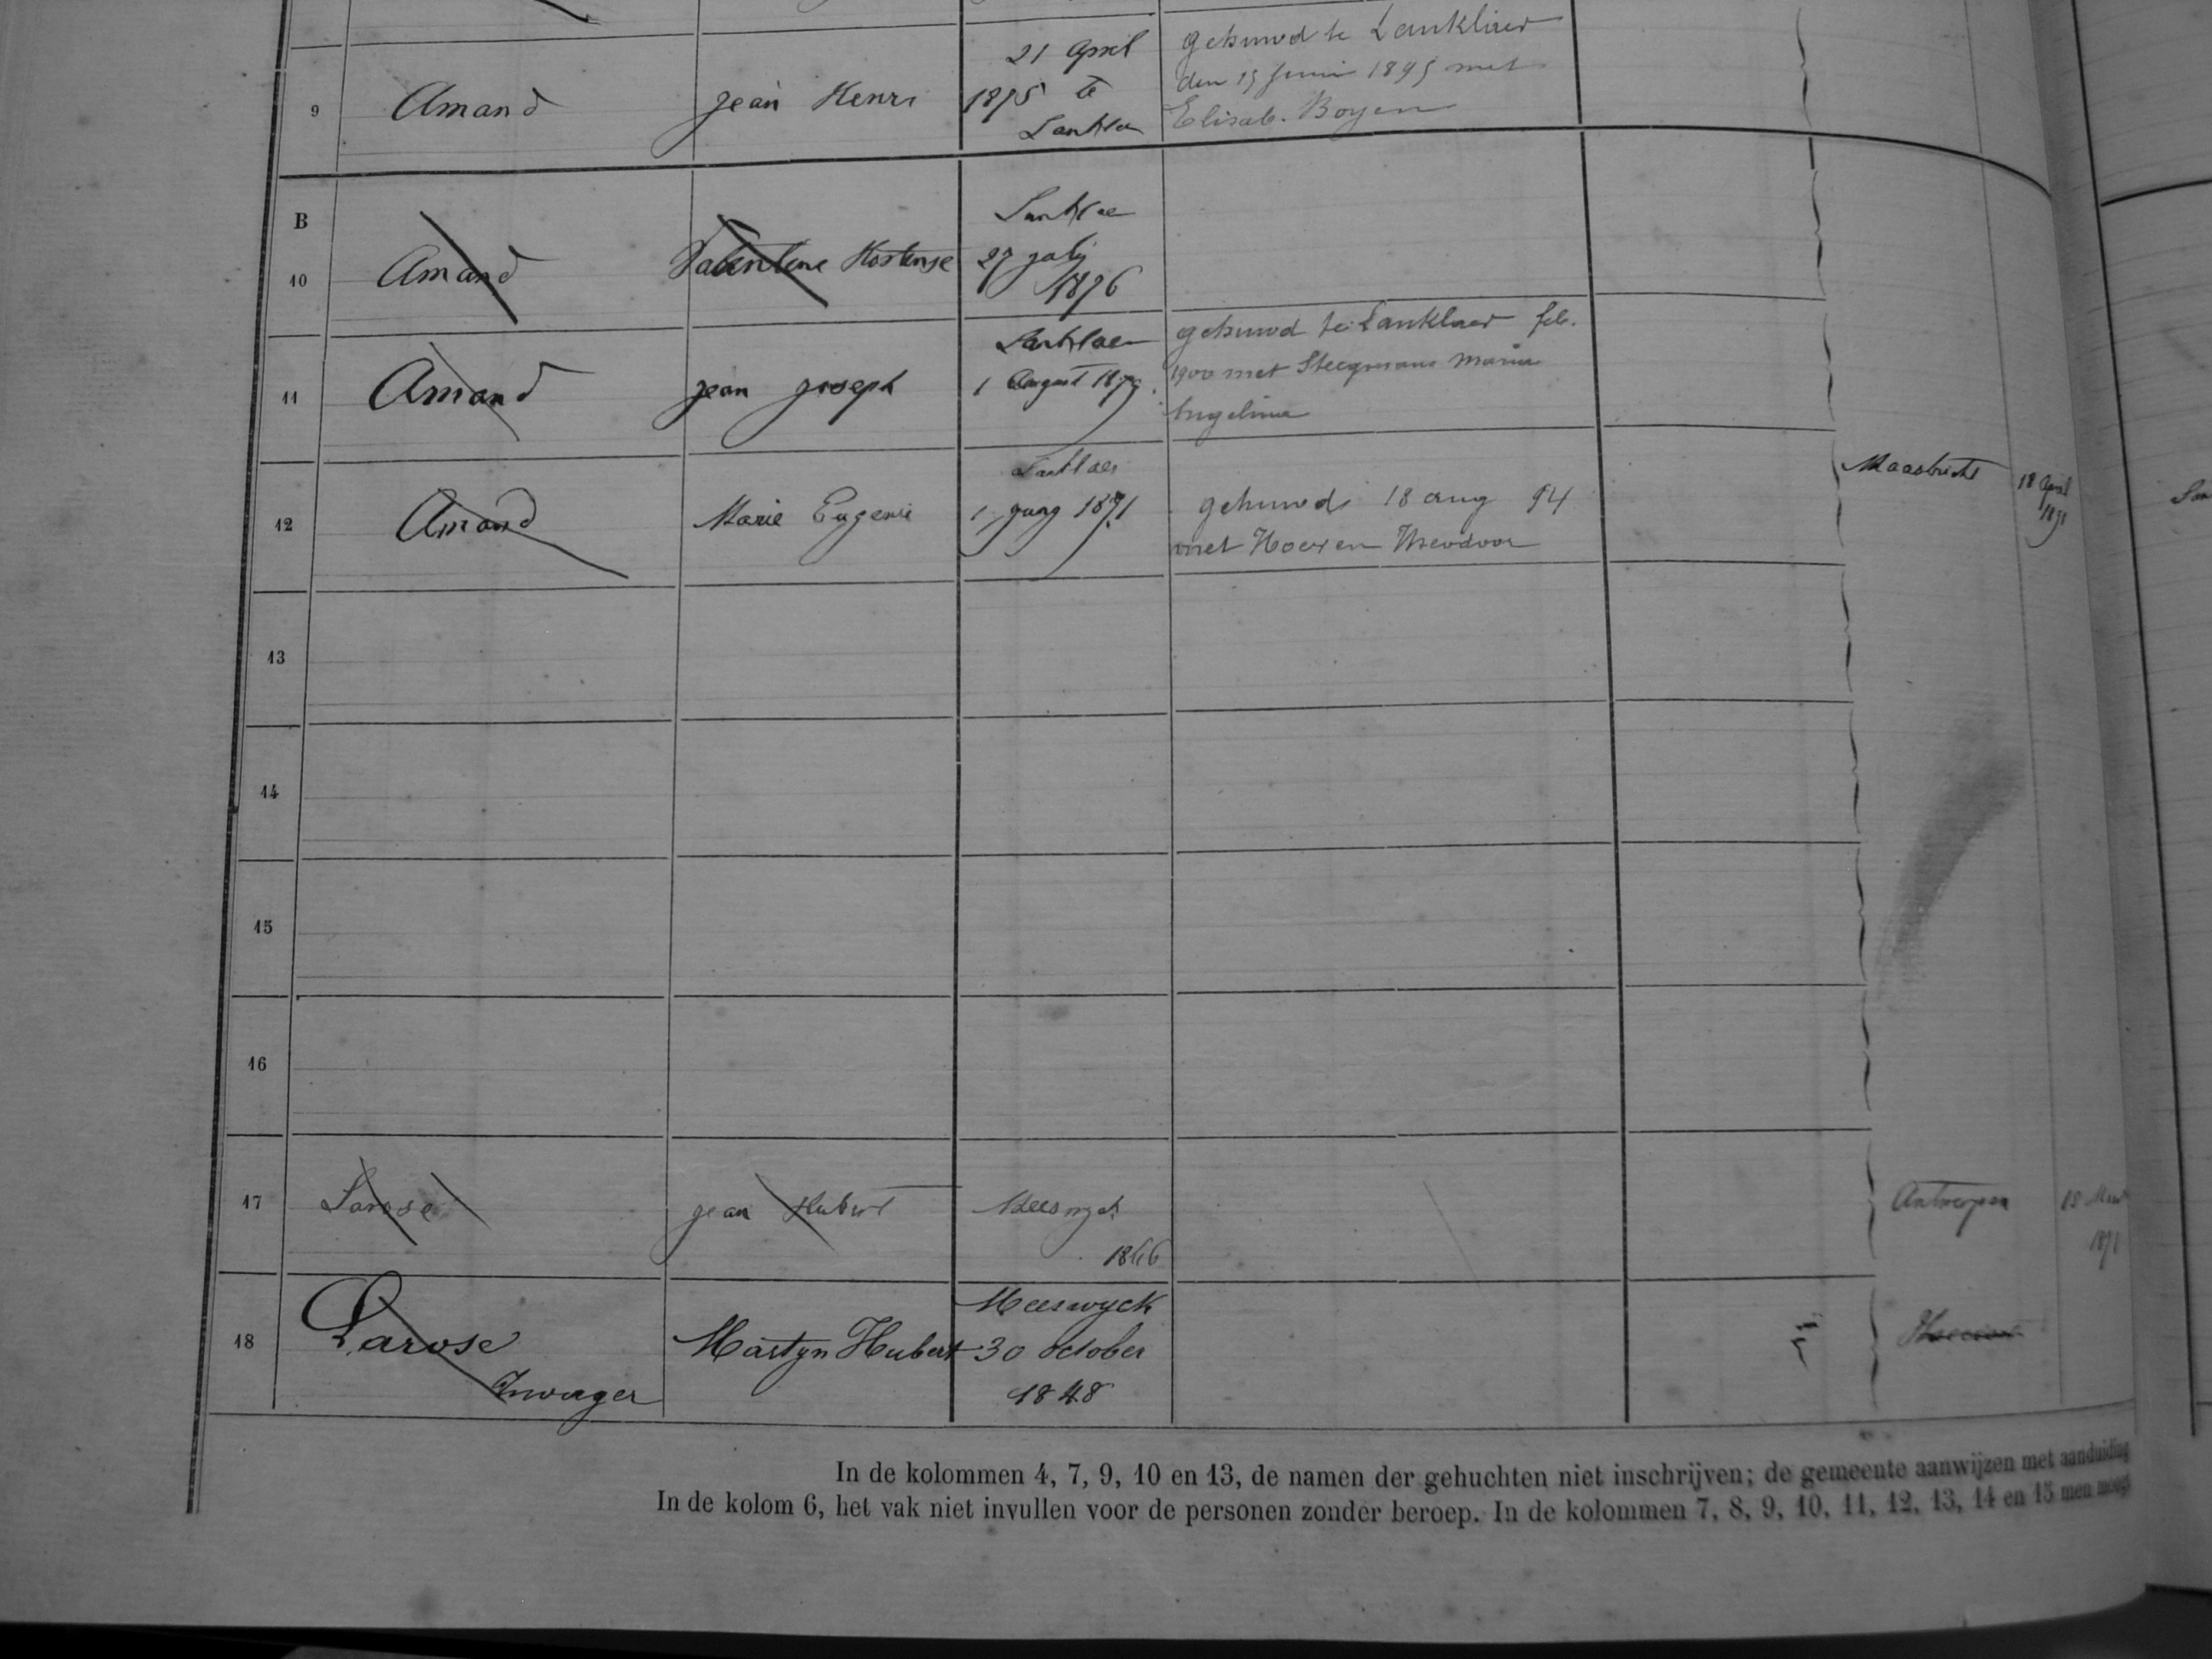 9 Amand jean Henri 21 April 1875 te gehuwd te Lanklaer
den 15 Juni 1895 met
Elisab. Boyen
B
10 Amand Hortense Lanklaer 27 july 1876
11 Amand jean joseph Lanklaer 1 August 1879 gehuwd te Lanklaer feb.
1900 met Steegmans Maria
Angelina
12 Amand Marie Eugenie Lanklaer 1 juny 1871 gehuwd 18 aug 94
met Hoeven Theodoor
Maastricht 18 April 1891
13
14
15
16
17 Larose jean Hubert 1866 Antwerpen 1891
18 Larose Zwager Martyn Hubert Meeswyck 30 october 1848
In de kolommen 4, 7, 9, 10 en 13, de namen der gehuchten niet inschrijven; de gemeente aanwijzen met aanduiding
In de kolom 6, het vak niet invullen voor de personen zonder beroep. In de kolommen 7, 8, 9, 10, 11, 12, 13, 14 en 15 men